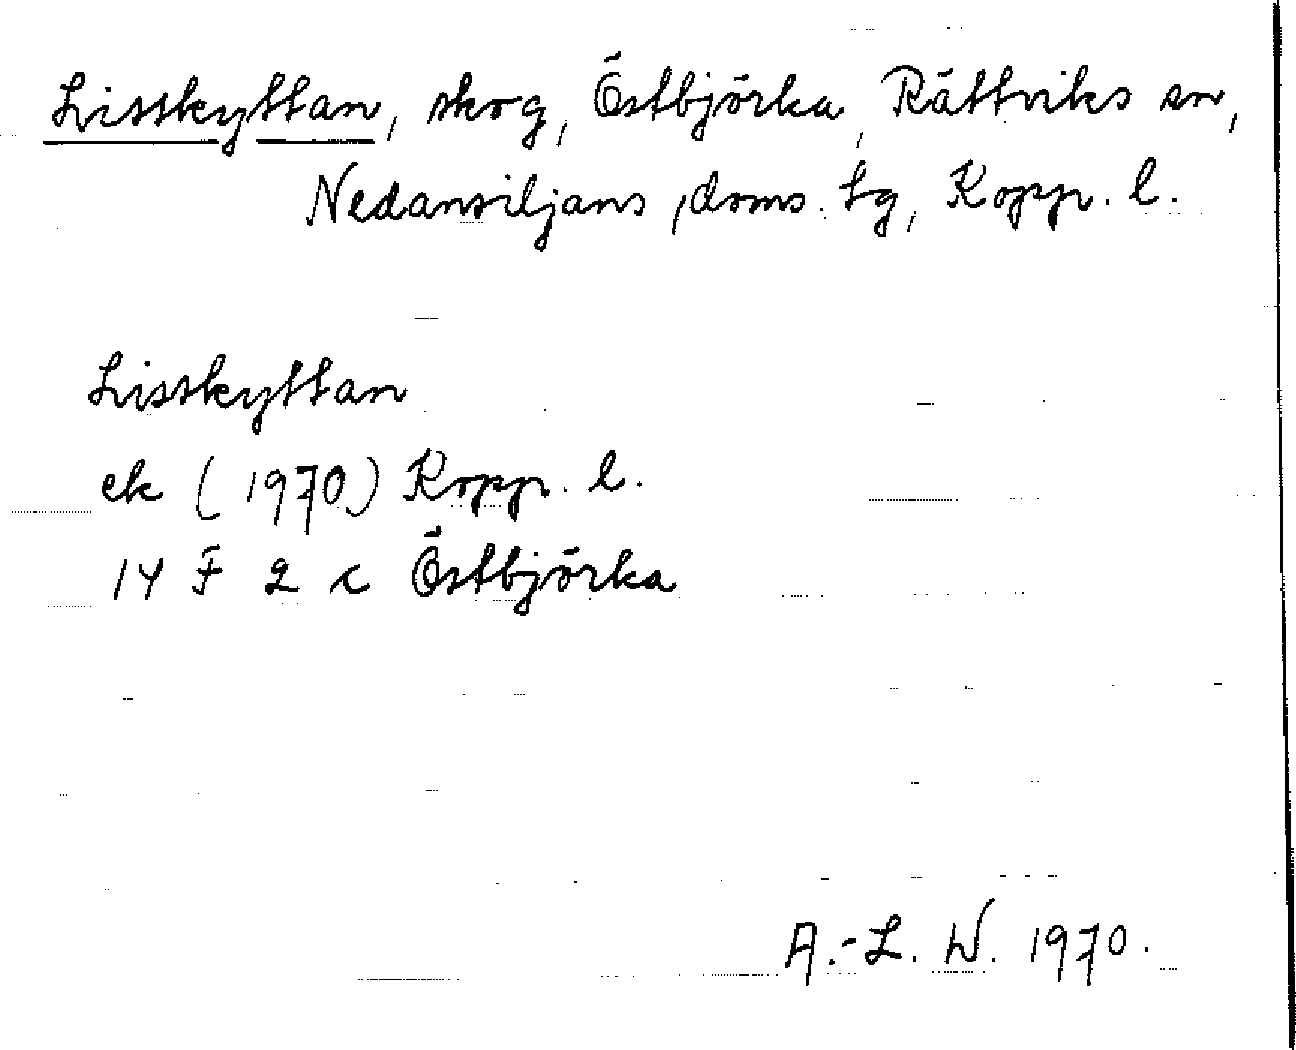 Lisskyttan, skog, Östbjörka, Rättviks sn,
Nedansiljans, doms. tg, Kopp. l.
Lisskyttan
ek (1970) Kopp. l.
14 F 2 c Östbjörka
A.-L. W. 1970.